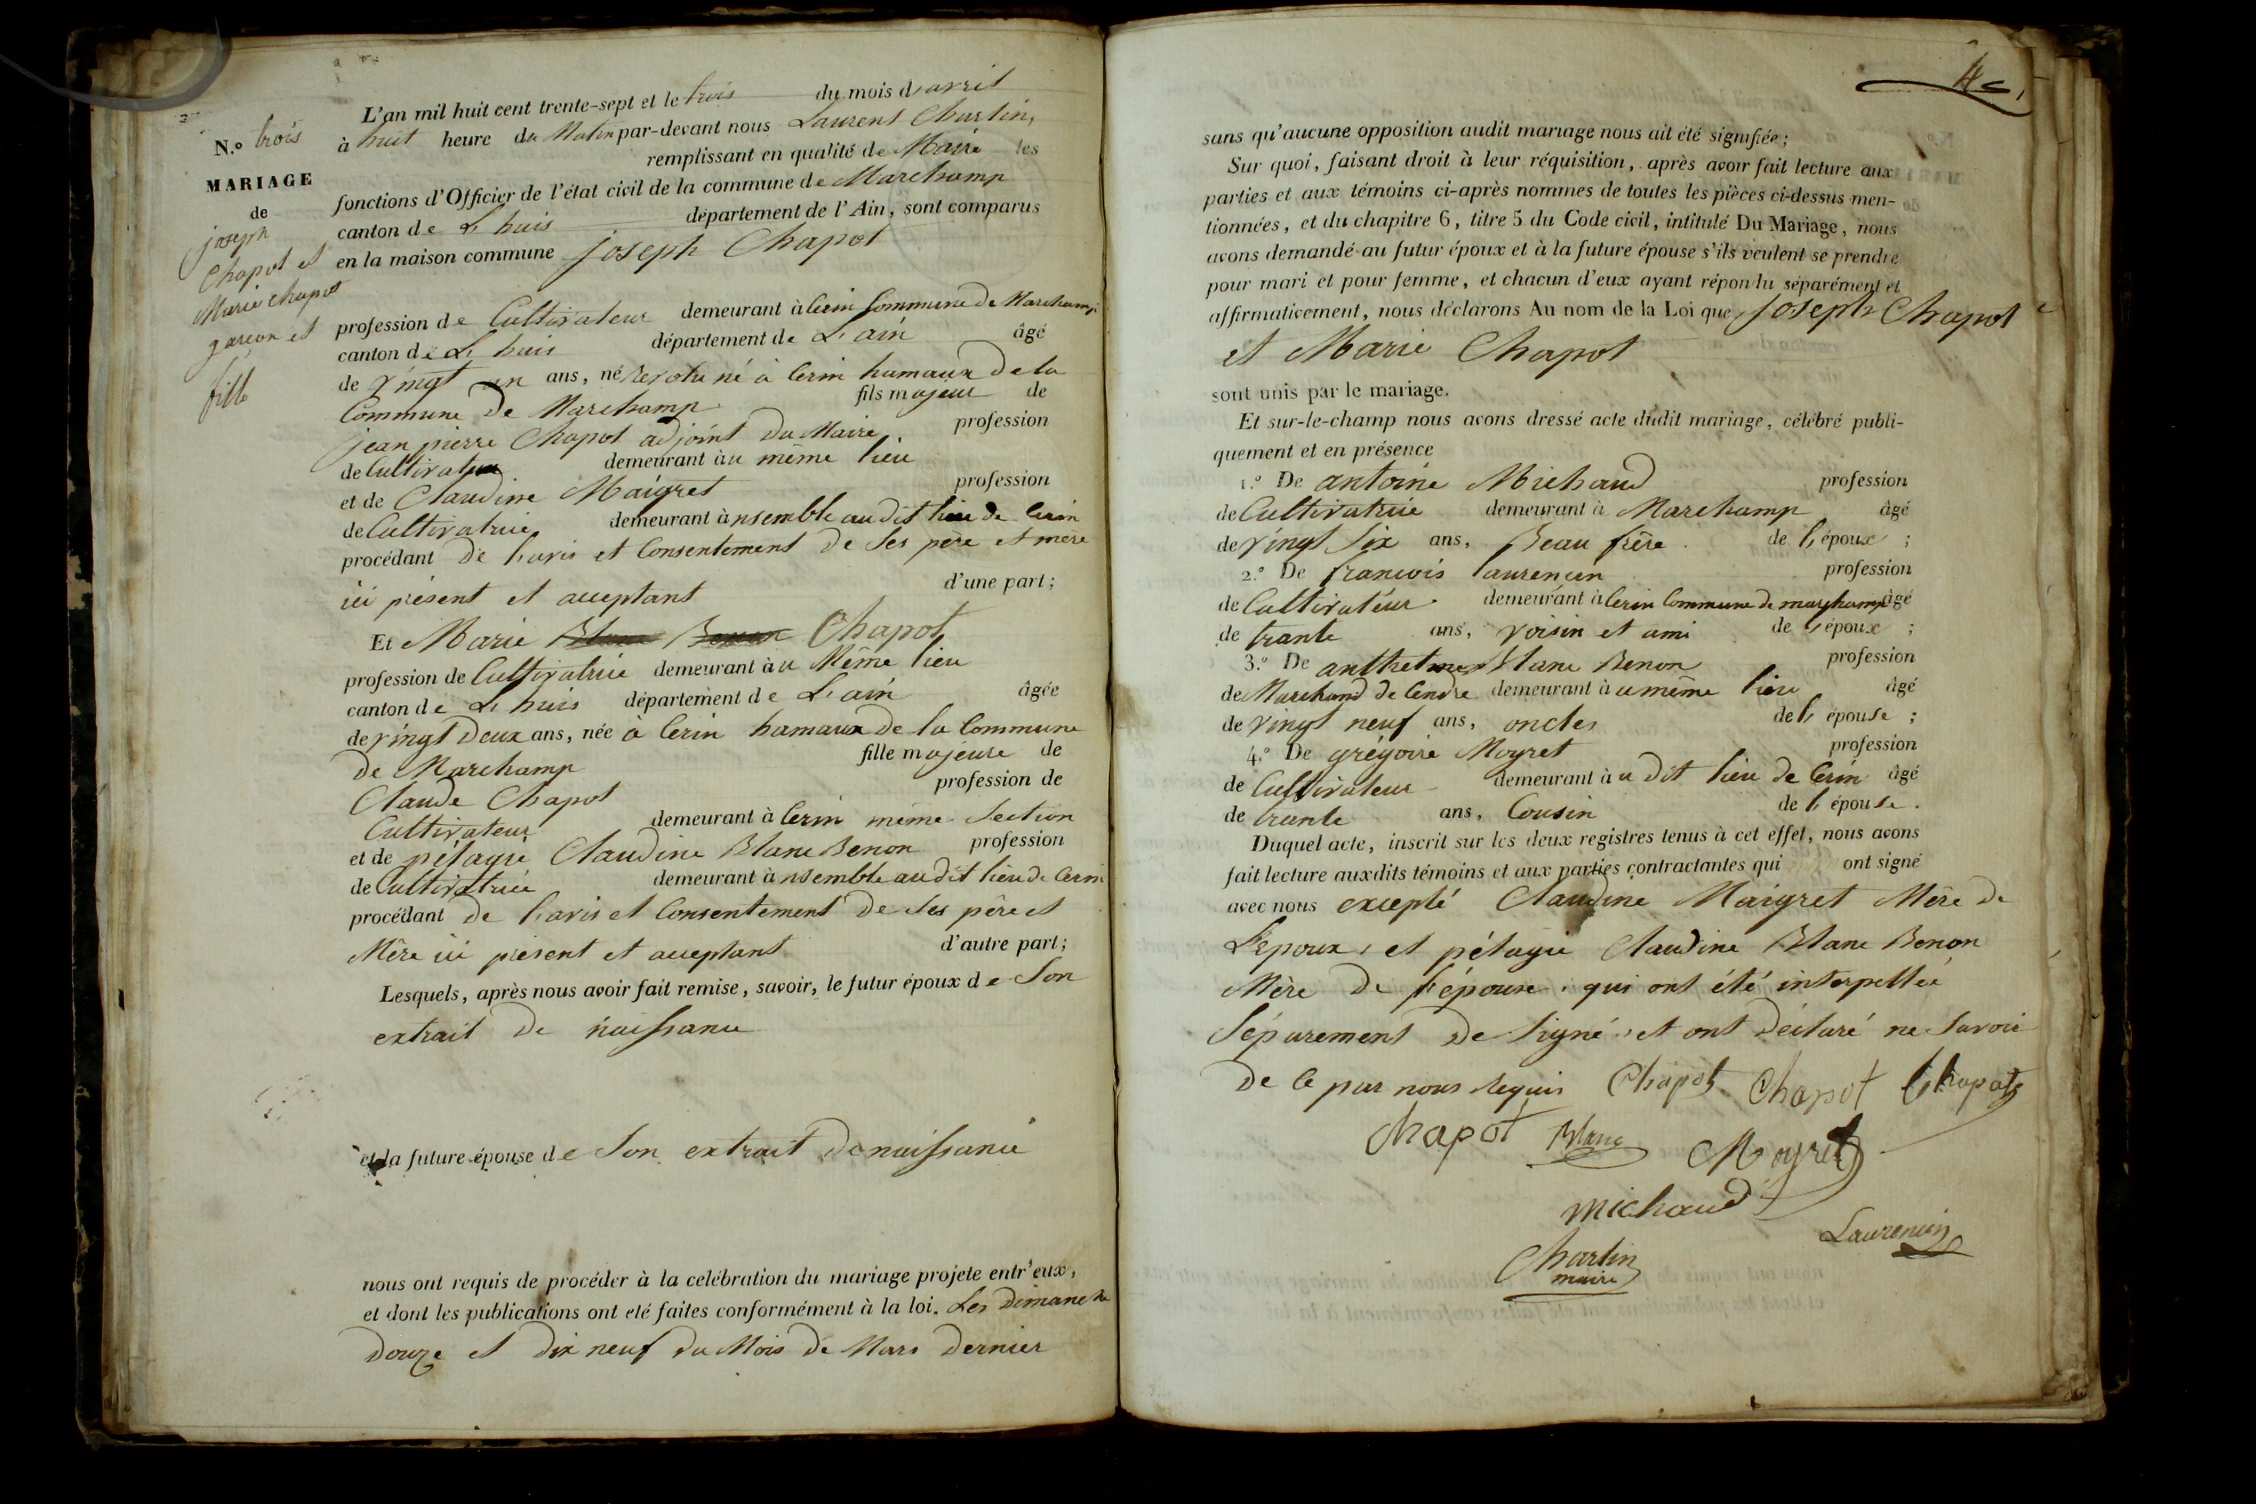 N.º trois
MARIAGE
de
joseph
Chapot et
Marie Chapot
garcon et
fille
L'an mil huit cent trente-sept et le trois du mois d'avril
à huit heure du Matin par-devant nous Laurent Charlin,
remplissant en qualité de Maire les
fonctions d'Officier de l'état civil de la commune de Marchamp
canton de L'huis département de l'Ain, sont comparus
en la maison commune joseph Chapot
profession de Cultivateur demeurant à Cerin Commune de Marchamp
canton de L'huis département de L'ain âgé
de vingt un ans, né revolu né à Cerin hamaux de la
Commune de Marchamp fils majeur de
jean pierre Chapot adjoint du Maire profession
de Cultivateur demeurant à u même lieu
et de Claudine Maigret profession
de Cultivatrice demeurant à nsemble au dit lieu de Cerin
procédant de l'avis et Consentement de ses père et mère
ici présent et acceptant d'une part;
Et Marie Blanc Benon Chapot
profession de Cultivatrice demeurant à u Même lieu
canton de L'huis département de L'ain âgée
de vingt Deux ans, née à Cerin hamaux de la Commune
de Marchamp fille majeure de
Claude Chapot profession de
Cultivateur demeurant à Cerin même Section
et de pélagie Claudine Blanc Benon profession
de Cultivatrice demeurant à nsemble au dit lieu de Cerin
procédant de l'avis et Consentement de ses père et
Mère ici présent et acceptant d'autre part;
Lesquels, après nous avoir fait remise, savoir, le futur époux de Son
extrait de naissance
et la future épouse de Son extrait de naissance
nous ont requis de procéder à la celébration du mariage projeté entr'eux,
et dont les publications ont eté faites conformément à la loi. Les Dimanche
Douze et dix neuf du Mois de Mars dernier
4
sans qu'aucune opposition audit mariage nous ait été signifiée;
Sur quoi, faisant droit à leur réquisition, après avoir fait lecture aux
parties et aux témoins ci-après nommés de toutes les pièces ci-dessus men-
tionnées, et du chapitre 6, titre 5 du Code civil, intitulé Du Mariage, nous
avons demandé au futur époux et à la future épouse s'ils veulent se prendre
pour mari et pour femme, et chacun d'eux ayant répondu séparément et
affirmativement, nous déclarons Au nom de la Loi que joseph Chapot
et Marie Chapot
sont unis par le mariage.
Et sur-le-champ nous avons dressé acte dudit mariage, célébré publi-
quement et en présence
1.º De antoine Michaud profession
de Cultivatrice demeurant à Marchamp âgé
de vingt Six ans, Beau frère de l'époux ;
2.º De francois laurencin profession
de Cultivateur demeurant à Cerin Commune de marchamp âgé
de trante ans, voisin et ami de l'époux ;
3.º De anthelme blanc Benon profession
de Marchand de Cendre demeurant à u même lieu âgé
de vingt neuf ans, oncles de l'épouse ;
4.º De grégoire Moyret profession
de Cultivateur demeurant à u dit lieu de Cerin âgé
de trante ans, Cousin de l'épouse.
Duquel acte, inscrit sur les deux registres tenus à cet effet, nous avons
fait lecture auxdits témoins et aux parties contractantes qui ont signé
avec nous excepté Claudine Maigret Mère de
L'époux, et pélagie Claudine Blanc Benon
Mère de l'épouse, qui ont été interpellée
Séparement de Signé, et ont déclaré ne Savoir
de Ce par nous requis Chapot Chapot Chapot
Chapot Blanc Moyret
michaud
Laurencin
Charlin
maire